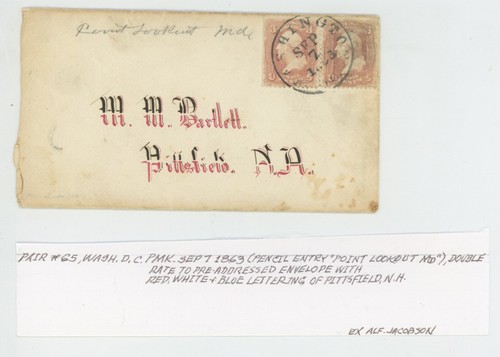 Point Lookout Md
WASHINGTON
SEP
7
1863
M. M. Bartlett.
Pittsfield. N.H.
PAIR #65, WASH. D.C. PMK. SEPT 1863 (PENCIL ENTRY "POINT LOOKOUT MD"), DOUBLE
RATE TO PRE-ADDRESSED ENVELOPE WITH
RED, WHITE & BLUE LETTERING OF PITTSFIELD, N.H.
EX ALF. JACOBSON